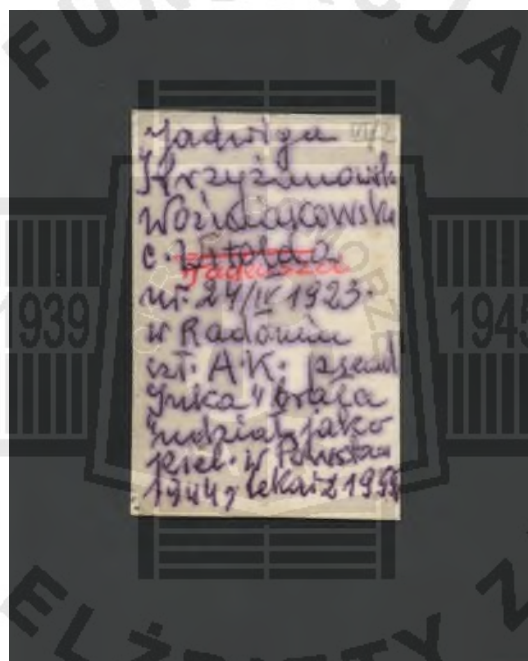 FUNDACJA
Jadwiga VI/2
Krzyżanowska
Woźniakowska
c. Witolda
Tadeusza
ur. 24/IV 1923.
w Radomiu
czł. A.K. pseud
"Inka" brała
udział jako
piel. w Powstan
1944, lekarz 195
1939
1945
ELŻBIETY Z